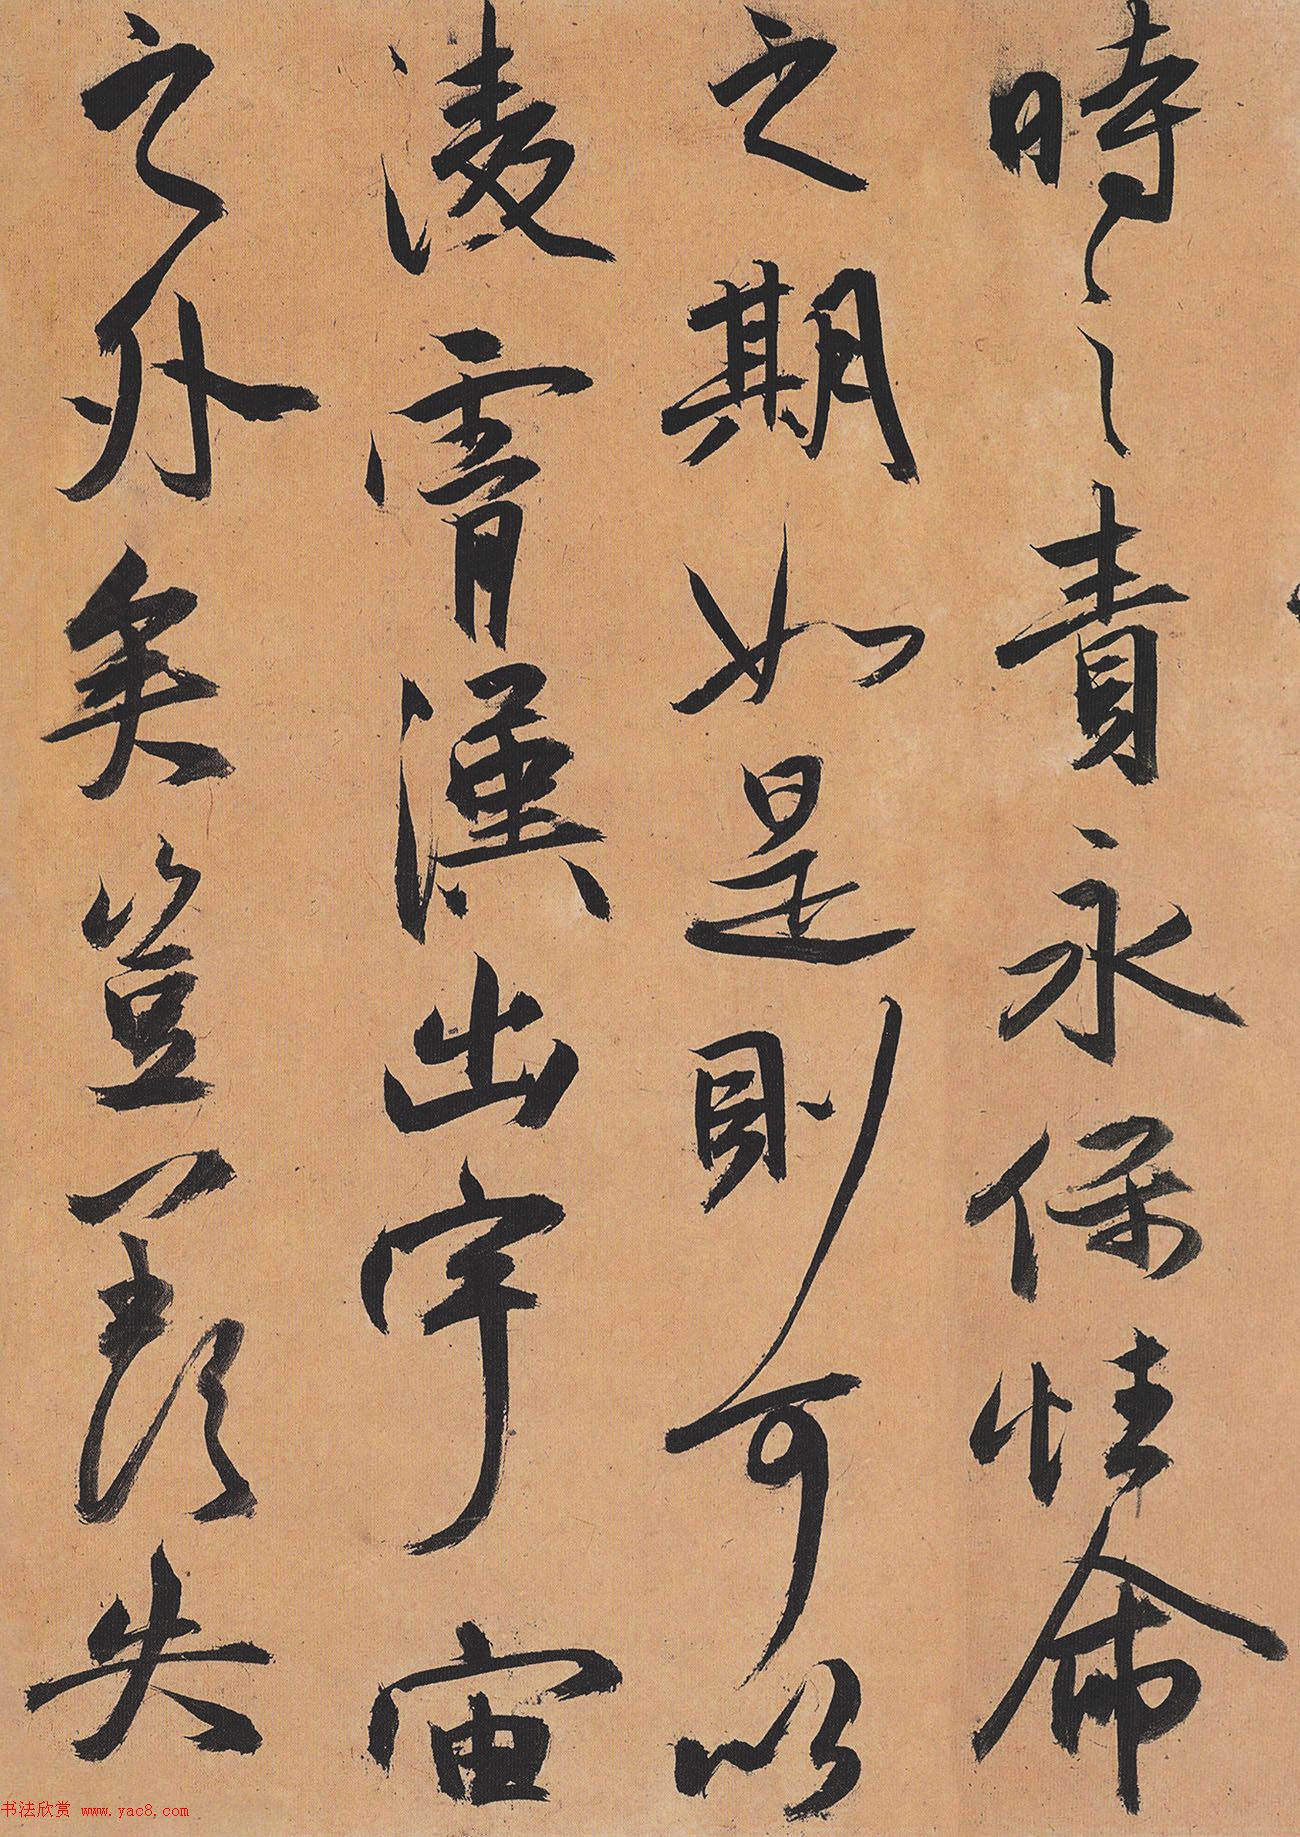 時之責永保性命
之期如是則可以
淩霄漢出宇宙
之外矣豈羨夫
书法欣赏 www.yac8.com